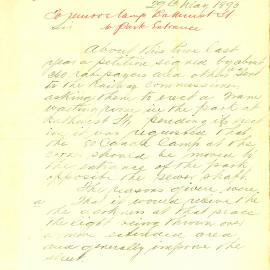 29th May 1893
To remove Lamp Bathurst St
to Park Entrance
Sir
About this time last
year a petition signed by about
360 ratepayers and others sent
to the Railway Commissioners
asking them to erect a Tram
waiting room in the park at
Bathurst St pending its erection
in it was requested that
the 80 Candle Lamp at the
corner should be moved
to the entrance of the park
opposite the Sewer Shaft
The reasons given were
That it would relieve the
the darkness at that place
the light being thrown over
a more extended area
and generally improve the
street.